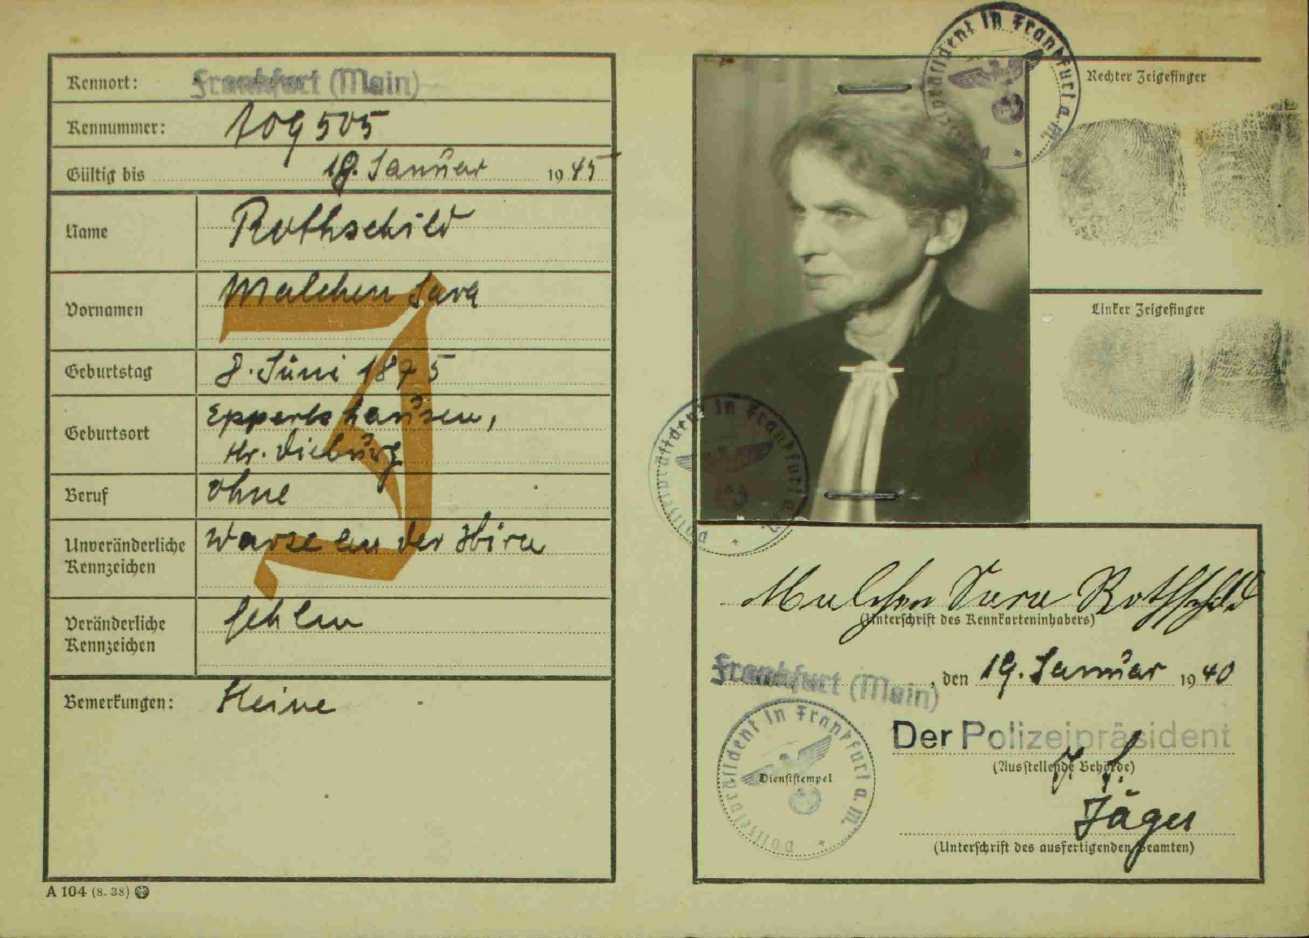 Kennort: Frankfurt (Main)
Kennummer: 109505
Gültig bis 19. Januar 1945
Name Rothschild
Vornamen Malchen Sara
Geburtstag 8. Juni 1875
Geburtsort Eppertshausen,
Kr. Dieburg
Beruf ohne
Unveränderliche Kennzeichen Warze an der Stirn
Veränderliche Kennzeichen fehlen
Bemerkungen: Keine
J
A 104 (8. 38)
Polizeipräsident in Frankfurt a. M.
Rechter Zeigefinger
Linker Zeigefinger
Polizeipräsident in Frankfurt a. M.
Malchen Sara Rothschild
(Unterschrift des Kennkarteninhabers)
Frankfurt (Main), den 19. Januar 1940
Der Polizeipräsident
(Ausstellende Behörde)
Polizeipräsident in Frankfurt a. M.
Dienststempel
Jäger
(Unterschrift des ausfertigenden Beamten)